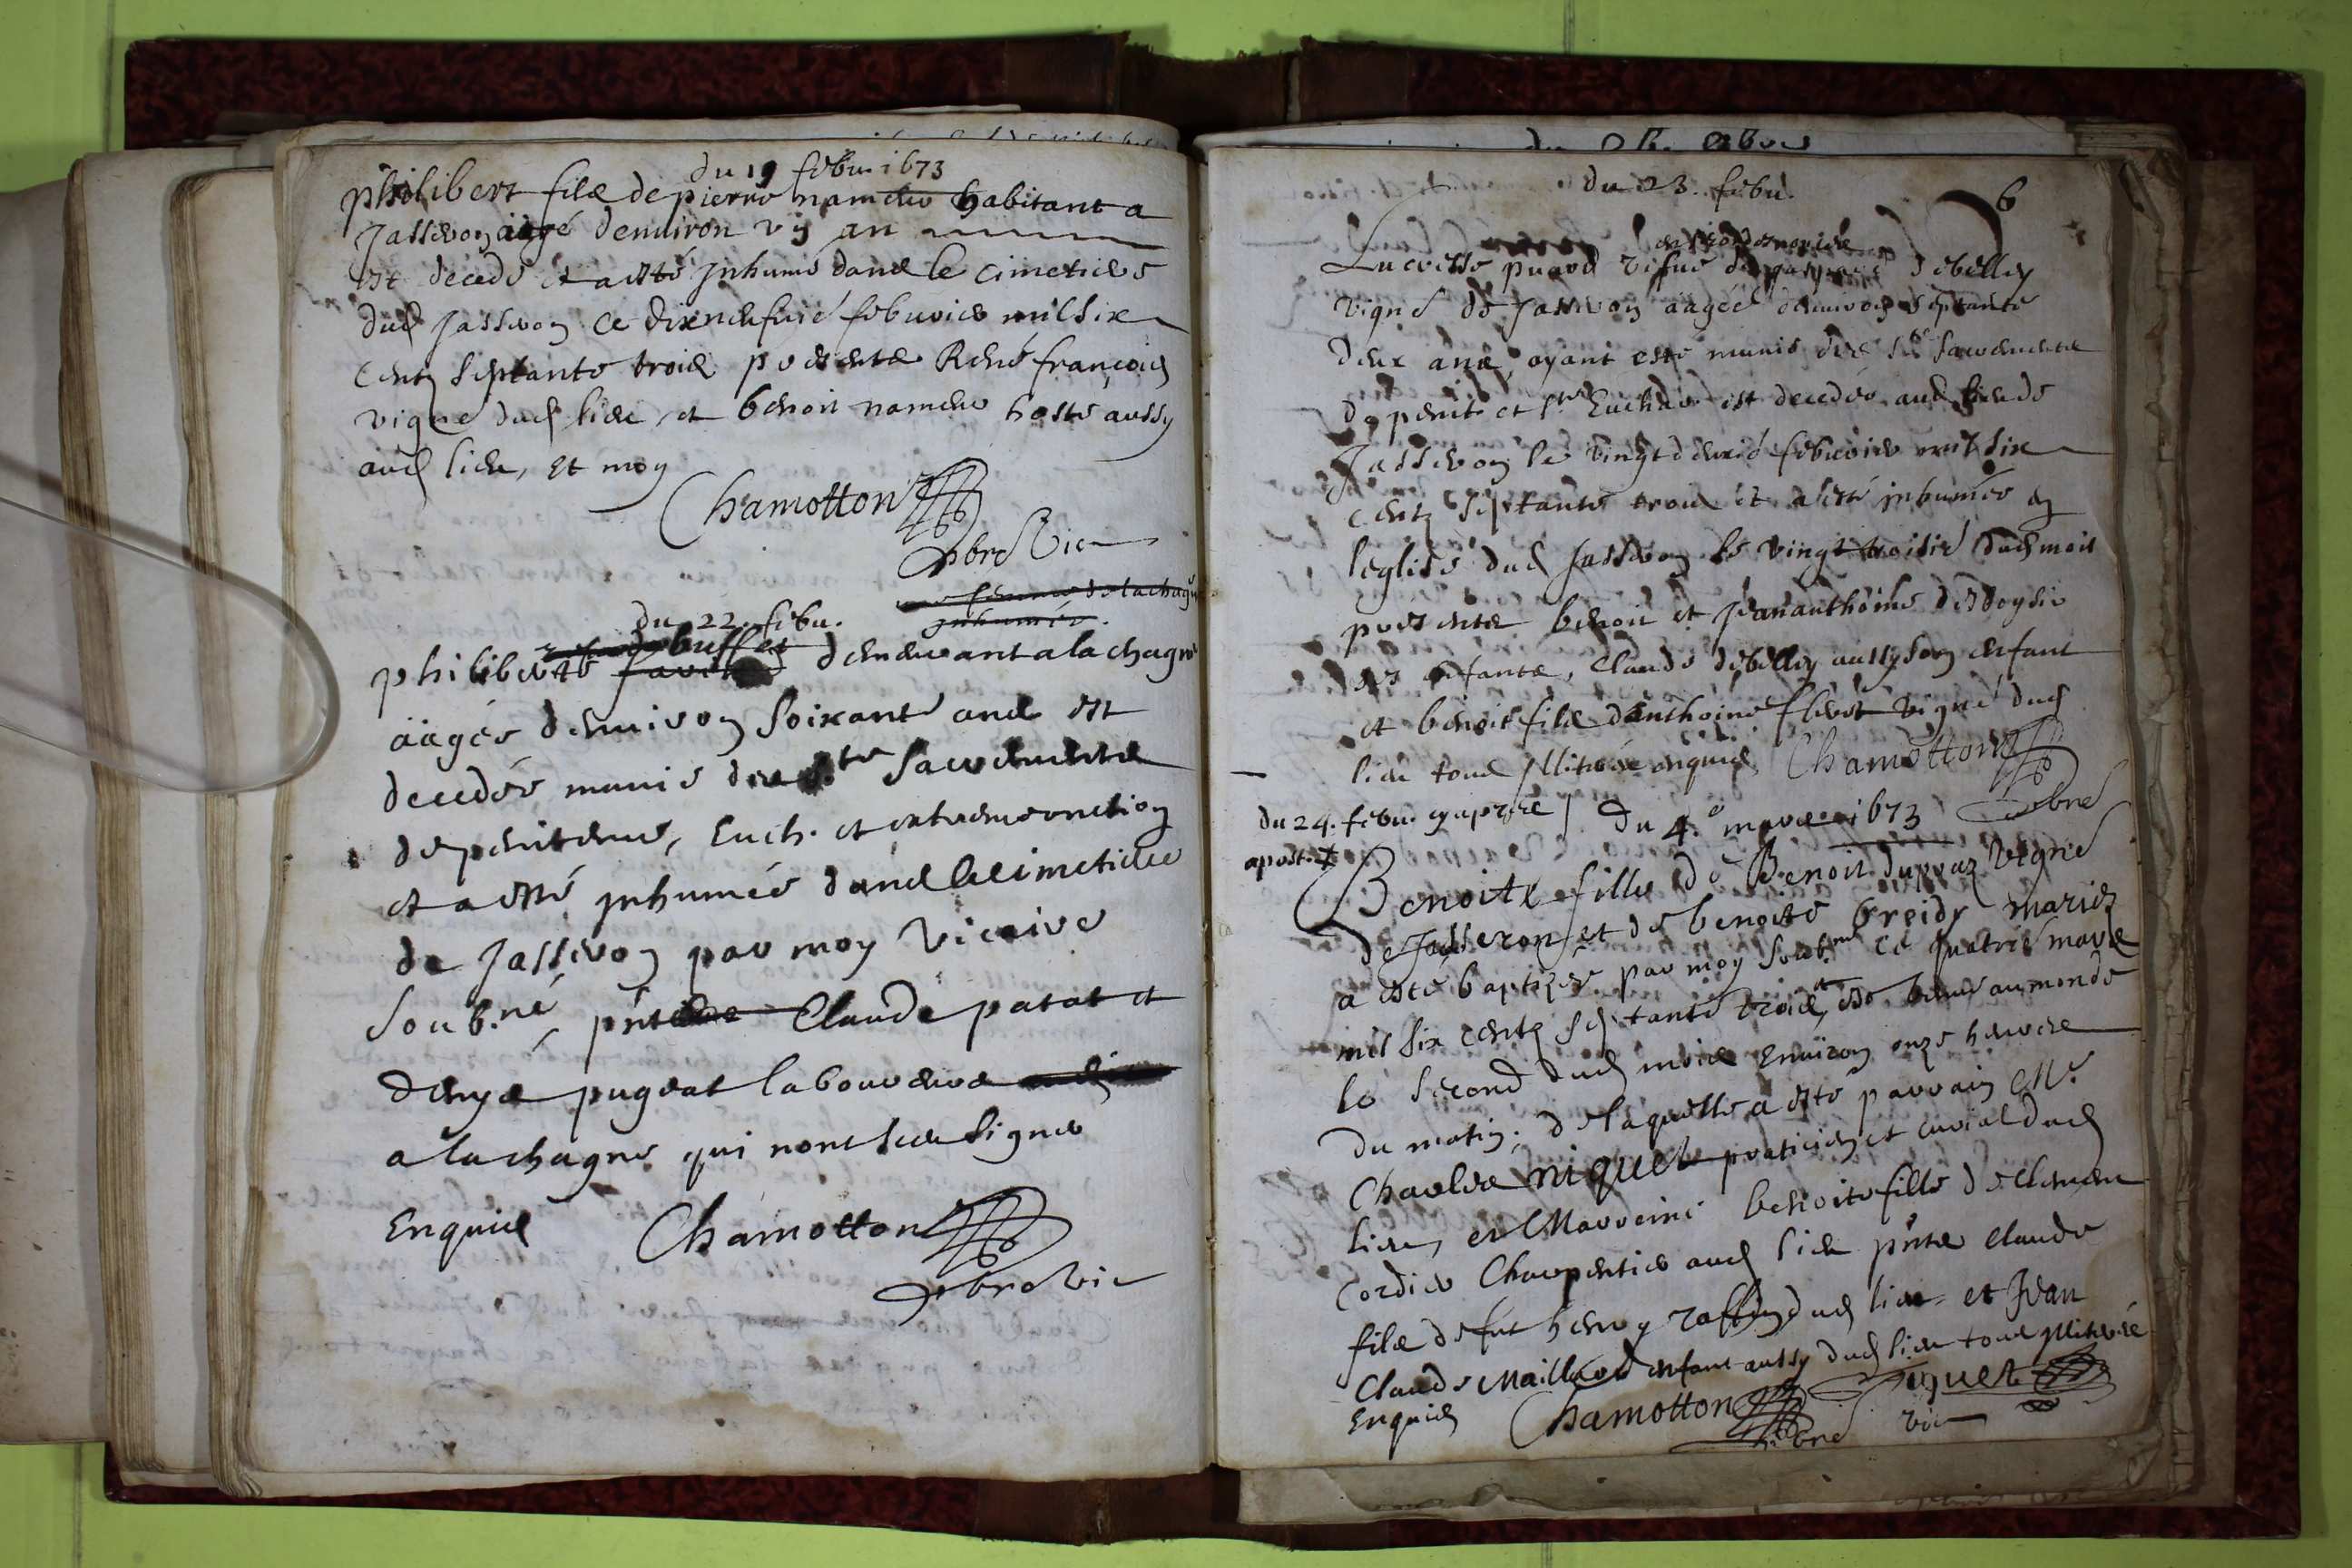 du 19 febu. 1673
philibert filz de pierre namche habitant a
Jasseron aagé denuiron vij an
est decede et a esté Inhumé dans le cimetiere
dud Jasseron ce dixneufuie feburier mil six
centz septante trois presents René françois
vigne dud lieu, et benoit namche hoste aussy
aud lieu, et moy
Chamotton
pbre Vic
femme de la chagne
inhumée
du 22. febu.
philiberte buffet demeurant a la chagne
aagée denuiron soixante ans est
decedée munie des sts sacrements
de penitence, Euch. et extremeonction
et a esté inhumée dans le cimetiere
de Jasseron par moy Vicaire
soub.né, pnts Claude patat et
denys pugeat laboureurs
a la chagne qui nont sceu signer
Enquis Chamotton
pbre Vic
du 23. febu.
6
en secondes nopces
Lucresse puard vefue debelley
vigne de Jasseron aagée denuiron septante
deux ans, ayant esté munie des Sts sacrements
de penit. et l'Euchar. est decedée aud lieu de
Jasseron le vingtdeuxie febürier mil six
centz septante trois et a esté inhumée en
leglise dud Jasseron le vingt troisie dud mois
presents benoit et Jeananthoine desboysie
ses enfants, Claude debelley aussy son enfant
et benoit filz danthoine vigne dud
lieu tous illiterés enquis, Chamotton
pbre
du 24. febu. cy apres
apost. +
du 4.e mars 1673
Benoite fille de Benoit dupraz vigne
de Jasseron et de benoite breidy mariez
a esté baptizée par moy soub.né ce quatrie mars
mil six centz septante trois, et est venue au monde
le second dud mois enuiron onze heures
du matin; de laquelle a esté parrain Me
Charles niquet praticien et curial dud
lieu, et Marreine benoite fille de Clement
Cordier Charpentier aud lieu pnts claude
filz de fut henry raffin dud lieu et Jean
Claude Maillard enfant aussy dud lieu tous illiterés
Enquis Chamotton Niquet
pbre vic